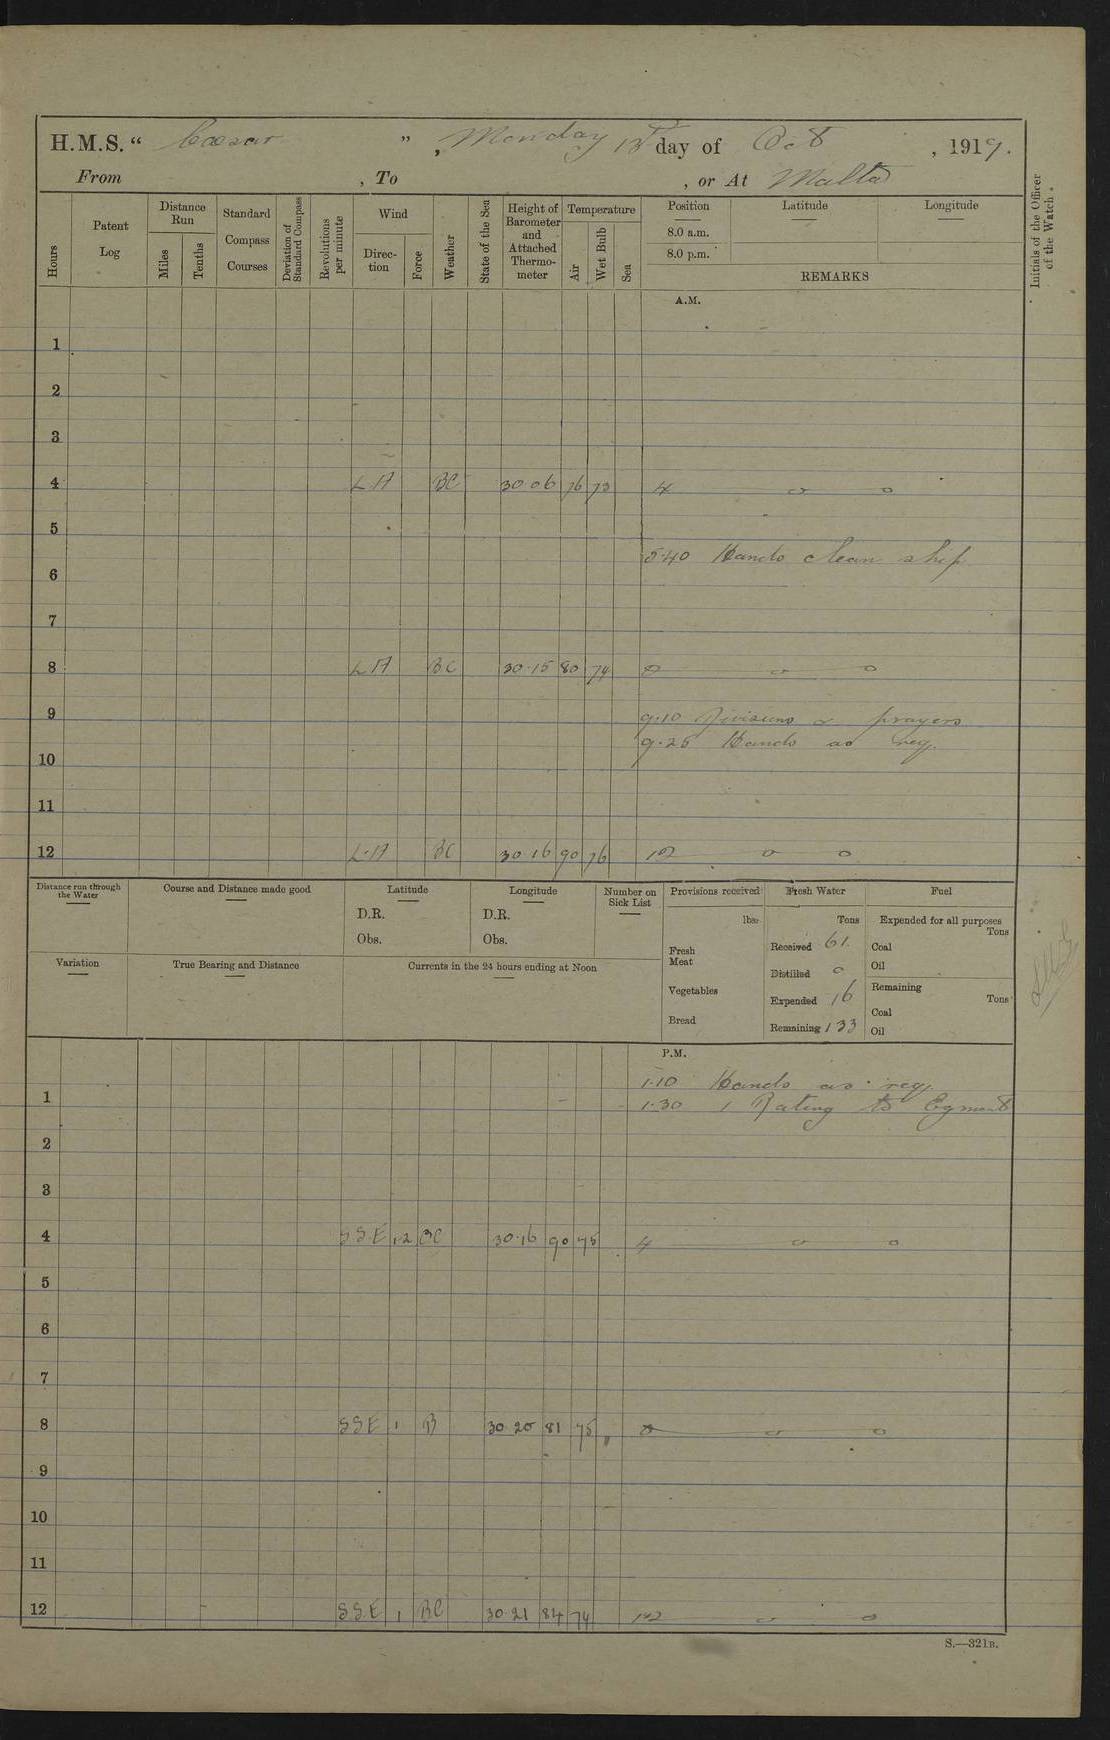 H.M.S. “ Caesar ”, Monday 13th day of Oct , 1919.
From , To , or At Malta
Hours
Patent Log
Distance Run
Miles
Tenths
Standard Compass Courses
Deviation of Standard Compass
Revolutions per minute
Wind
Direction
Force
Weather
State of the Sea
Height of Barometer and Attached Thermometer
Temperature
Air
Wet Bulb
Sea
Position Latitude Longitude
8.0 a.m.
8.0 p.m.
REMARKS
Initials of the Officer of the Watch.
A.M.
1
2
3
4 LA BC 30 06 76 73 4 o o
5
5.40 Hands clean ship
6
7
8 LA BC 30.15 80 74 8 o o
9
9.10 Divisions & prayers
9.25 Hands as req.
10
11
12 L.A BC 30 16 90 76 12 o o
Distance run through the Water
Course and Distance made good
Latitude
D.R.
Obs.
Longitude
D.R.
Obs.
Number on Sick List
Provisions received
lbs.
Fresh Meat
Vegetables
Bread
Fresh Water
Tons
Received 61
Distilled o
Expended 16
Remaining 133
Fuel
Expended for all purposes
Tons
Coal
Oil
Remaining
Tons
Coal
Oil
Variation
True Bearing and Distance
Currents in the 24 hours ending at Noon
P.M.
1.10 Hands as req.
1
1.30 1 Rating to Egmont
2
3
4 SSE 1.2 BC 30.16 90 75 4 o o
5
6
7
8 SSE 1 B 30 20 81 75 8 o o
9
10
11
12 SSE 1 BC 30.21 84 74 12 o o
S.—321B.